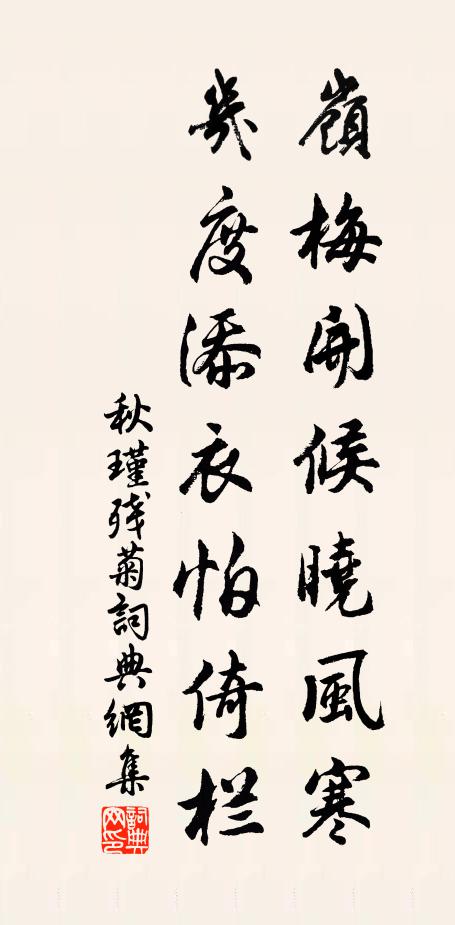 嶺梅開候曉風寒
幾度添衣怕倚栏
秋瑾残菊詞典網集
詞典網印